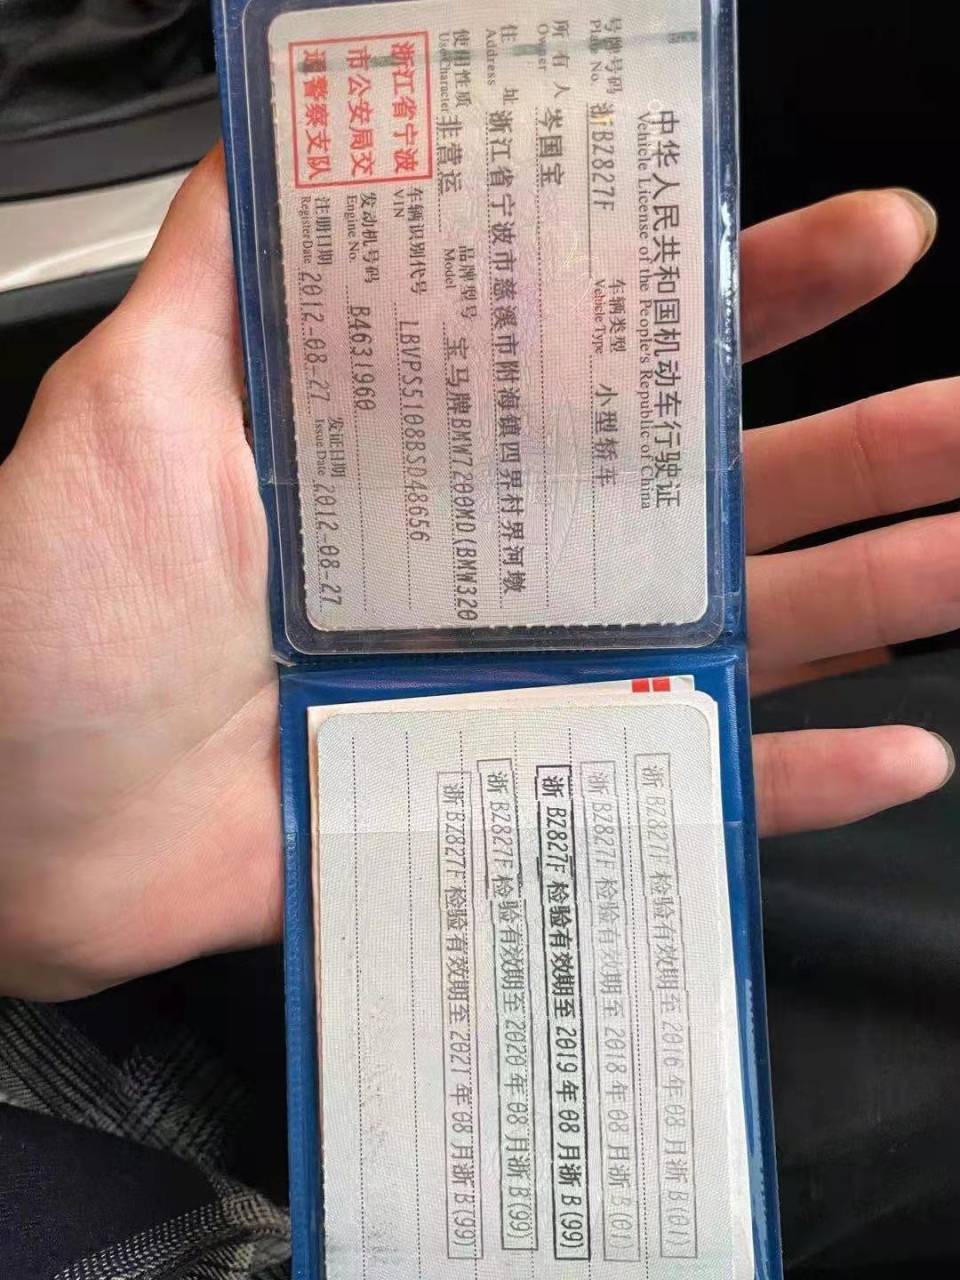 中华人民共和国机动车行驶证
Vehicle License of the People's Republic of China
号牌号码 浙BZ827F 车辆类型 小型轿车
Plate No. Vehicle Type
所有人 岑国宝
Owner
住址 浙江省宁波市慈溪市附海镇四界村界河墩
Address
使用性质 非营运 品牌型号 宝马牌BMW7200MD(BMW320
Use Character Model
浙江省宁波
市公安局交
通警察支队
车辆识别代号 LBVPS5108BSD48656
VIN
发动机号码 B4631960
Engine No.
注册日期 2012-08-27 发证日期 2012-08-27
Register Date Issue Date
浙BZ827F检验有效期至2016年08月浙B(01)
浙BZ827F检验有效期至2018年08月浙B(01)
浙BZ827F检验有效期至2019年08月浙B(99)
浙BZ827F检验有效期至2020年08月浙B(99)
浙BZ827F检验有效期至2021年08月浙B(99)